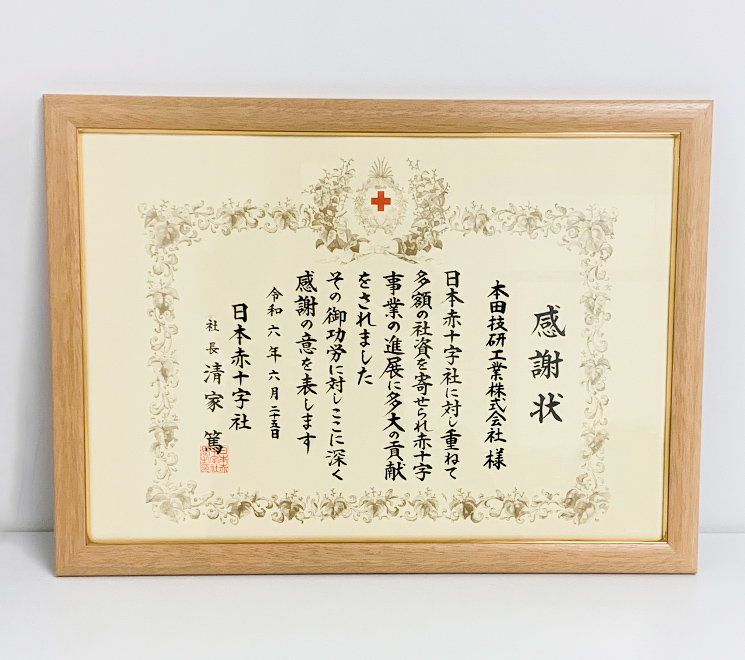 感謝状
本田技研工業株式会社 様
日本赤十字社に対し重ねて
多額の社資を寄せられ赤十字
事業の進展に多大の貢献
をされました
その御功労に対しここに深く
感謝の意を表します
令和六年六月二十五日
日本赤十字社
社長 清家 篤